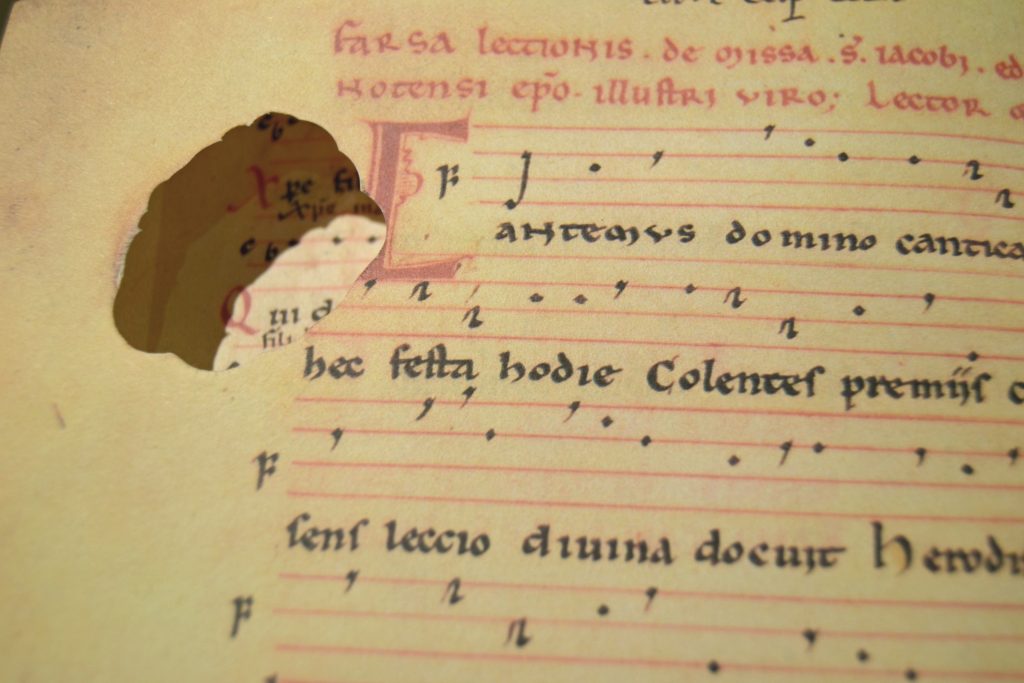 farsa lectionis. de missa .S. iacobi. ed
notensi ep̄o. illustri viro; Lector
Cantemus domino cantica
hec festa hodie Colentes premiis
sens leccio diuina docuit herodi
Xpe fil
Qui d